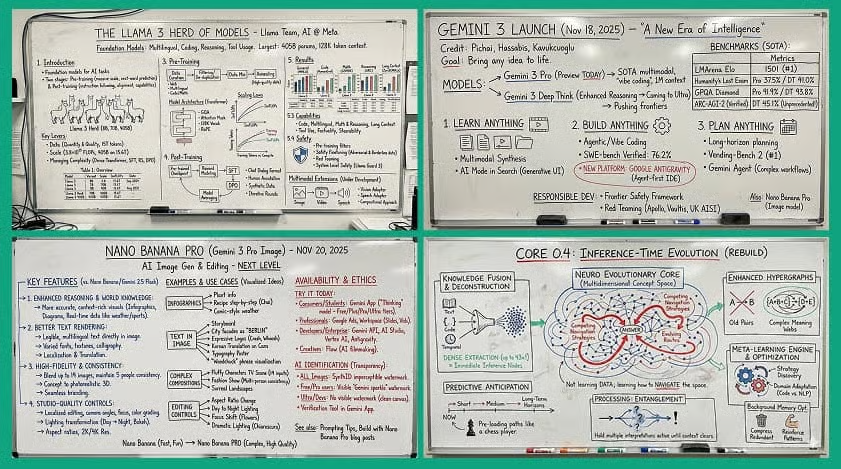 THE LLAMA 3 HERD OF MODELS - Llama Team, AI @ Meta.
Foundation Models: Multilingual, Coding, Reasoning, Tool Usage. Largest: 405B params, 128K token context.
1. Introduction
• Foundation models for AI tasks
• Two stages: Pre-training (massive scale, next-word prediction)
& Post-training (instruction following, alignment, capabilities)
Llama 3 Herd (8B, 70B, 405B)
Key Levers
• Data (Quantity & Quality, 15T tokens)
• Managing Complexity (Dense Transformer, SFT, RS, DPO)
Table 1: Overview
3. Pre-Training
Data Curation
Filtering
De-duplication
Data Mix
Annealing
(High-quality data)
• Multilingual
Model Architecture (Transformer)
Scaling Laws
• GQA
• Attention Mask
• 128K Vocab
• RoPE
4. Post-Training
Pre-trained Checkpoint
Reward Modeling
SFT
DPO
Model Averaging
• Chat Dialog Format
• Human Annotation
• Synthetic Data
• Iterative Rounds
5. Results
5.3 Capabilities
• Code, Multilingual, Math & Reasoning, Long Context
• Tool Use, Factuality, Steerability
5.4 Safety
• Pre-training Filters
• Safety Finetuning (Adversarial & Borderline data)
• Red Teaming
• System Level Safety (Llama Guard 3)
Multimodal Extensions (Under Development)
Image
Video
Speech
• Vision Adapter
• Speech Adapter
• Compositional Approach
GEMINI 3 LAUNCH (Nov 18, 2025) - "A New Era of Intelligence"
Credit: Pichai, Hassabis, Kavukcuoglu
Goal: Bring any idea to life.
MODELS:
Gemini 3 Pro (Preview TODAY) → SOTA multimodal,
"vibe coding", 1M context
Gemini 3 Deep Think (Enhanced Reasoning → Coming to Ultra)
→ Pushing frontiers
BENCHMARKS (SOTA):
Metrics
LMArena Elo 1501 (#1)
Humanity's Last Exam Pro 37.5% / DT 41.0%
GPQA Diamond Pro 91.9% / DT 93.8%
ARC-AGI-2 (Verified) DT 45.1% (Unprecedented!)
1. LEARN ANYTHING
• Multimodal Synthesis
• AI Mode in Search (Generative UI)
2. BUILD ANYTHING
• Agentic/Vibe Coding
• SWE-bench Verified: 76.2%
• NEW PLATFORM: GOOGLE ANTIGRAVITY
(Agent-first IDE)
3. PLAN ANYTHING
• Long-horizon planning
• Vending-Bench 2 (#1)
• Gemini Agent (Complex workflows)
RESPONSIBLE DEV:
• Frontier Safety Framework
• Red Teaming (Apollo, Vaultis, UK AISI)
Also: Nano Banana Pro
(Image model)
NANO BANANA PRO (Gemini 3 Pro Image) - NOV 20, 2025
AI Image Gen & Editing - NEXT LEVEL
KEY FEATURES (vs. Nano Banana/Gemini 2.5 Flash)
1. ENHANCED REASONING & WORLD KNOWLEDGE:
• More accurate, context-rich visuals (Infographics,
Diagrams, Real-time data like weather/sports).
2. BETTER TEXT RENDERING:
• Legible, multilingual text directly in image.
• Varied fonts, textures, calligraphy.
• Localization & Translation.
3. HIGH-FIDELITY & CONSISTENCY:
• Blend up to 14 images, maintain 5 people consistency.
• Concept to photorealistic 3D.
• Seamless branding.
4. STUDIO-QUALITY CONTROLS:
• Localized editing, camera angles, focus, color grading.
• Lighting transformation (Day → Night, Bokeh).
• Aspect ratios, 2K/4K Res.
EXAMPLES & USE CASES (Visualized Ideas)
INFOGRAPHICS
• Plant info
• Recipe step-by-step (Chai)
• Comic-style weather
TEXT IN IMAGE
• Storyboard
• City facades as "BERLIN"
• Expressive Logos (Crash, Woosh)
• Korean Translation on Cans
• Typography Poster
• "Woodchuck" phrase visualization
COMPLEX COMPOSITIONS
• Fluffy Characters TV Scene (14 inputs)
• Fashion Show (Multi-person consistency)
• Surreal Landscapes
EDITING CONTROLS
• Aspect Ratio Change
• Day to Night Lighting
• Focus Shift (Flowers)
• Dramatic Lighting (Chiaroscuro)
AVAILABILITY & ETHICS
TRY IT TODAY:
• Consumers/Students: Gemini App ("Thinking"
model - Free/Plus/Pro/Ultra tiers).
• Professionals: Google Ads, Workspace (Slides, Vids).
• Developers/Enterprise: Gemini API, AI Studio,
Vertex AI, Antigravity.
• Creatives: Flow (AI filmmaking).
AI IDENTIFICATION (Transparency):
• ALL Images: SynthID imperceptible watermark.
• Free/Pro users: Visible "Gemini sparkle" watermark.
• Ultra/Devs: No visible watermark (clean canvas).
• Verification Tool in Gemini App.
Nano Banana (Fast, Fun) → Nano Banana PRO (Complex, High Quality)
See also: Prompting Tips, Build with Nano
Banana Pro blog posts
CORE 0.4: INFERENCE-TIME EVOLUTION (REBUILD)
KNOWLEDGE FUSION
& DECONSTRUCTION
Text
Code
Temporal
DENSE EXTRACTION (up to 43x!)
= Immediate Inference Nodes
NEURO EVOLUTIONARY CORE
(Multidimensional Concept Space)
Competing Navigation Strategies
Competing Navigation Strategies
ANSWER
Evolving Routes
Not learning DATA; learning how to NAVIGATE the space.
ENHANCED HYPERGRAPHS
A → B
Old Pairs
Complex Meaning Webs
META-LEARNING ENGINE
& OPTIMIZATION
→ Strategy Discovery
→ Domain Adaptation
(Code vs. NLP)
Background Memory Opt.
Compress Redundant
Reinforce Patterns
PREDICTIVE ANTICIPATION
NOW
Short → Medium → Long-Term Horizons
Pre-loading paths like
a chess player.
PROCESSING: ENTANGLEMENT
Hold multiple interpretations active until context clears.